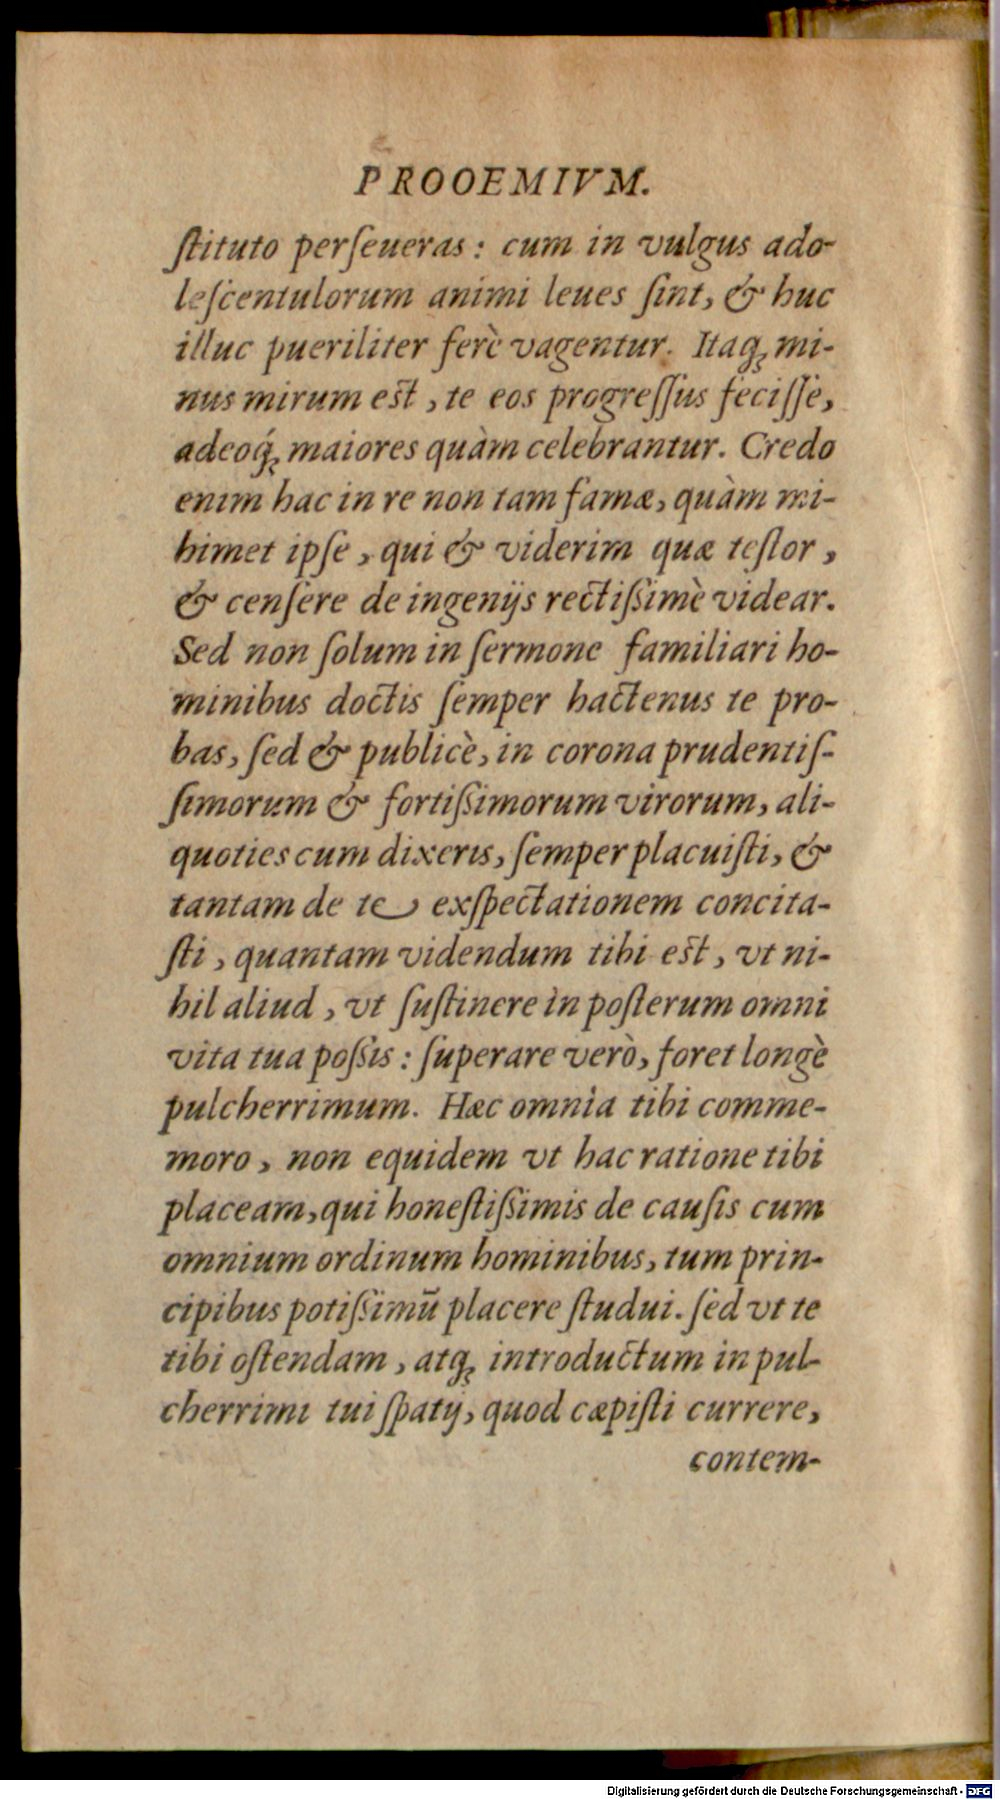 PROOEMIVM.
ſtituto perſeueras: cum in vulgus ado-
leſcentulorum animi leues ſint, & huc
illuc pueriliter ferè vagentur. Itaq; mi-
nus mirum est, te eos progreſſus feciſſe,
adeoq́; maiores quàm celebrantur. Credo
enim hac in re non tam famæ, quàm mi-
himet ipſe, qui & viderim quæ teſtor,
& cenſere de ingenijs rectiſsimè videar.
Sed non ſolum in ſermone familiari ho-
minibus doctis ſemper hactenus te pro-
bas, ſed & publicè, in corona prudentiſ-
ſimorum & fortiſsimorum virorum, ali-
quoties cum dixeris, ſemper placuiſti, &
tantam de te exſpectationem concita-
ſti, quantam videndum tibi est, vt ni-
hil aliud, vt ſuſtinere in poſterum omni
vita tua poſsis: ſuperare verò, foret longè
pulcherrimum. Hæc omnia tibi comme-
moro, non equidem vt hac ratione tibi
placeam, qui honeſtiſsimis de cauſis cum
omnium ordinum hominibus, tum prin-
cipibus potiſsimū placere ſtudui. ſed vt te
tibi oſtendam, atq; introductum in pul-
cherrimi tui ſpatij, quod cæpiſti currere,
contem-
Digitalisierung gefördert durch die Deutsche Forschungsgemeinschaft - DFG